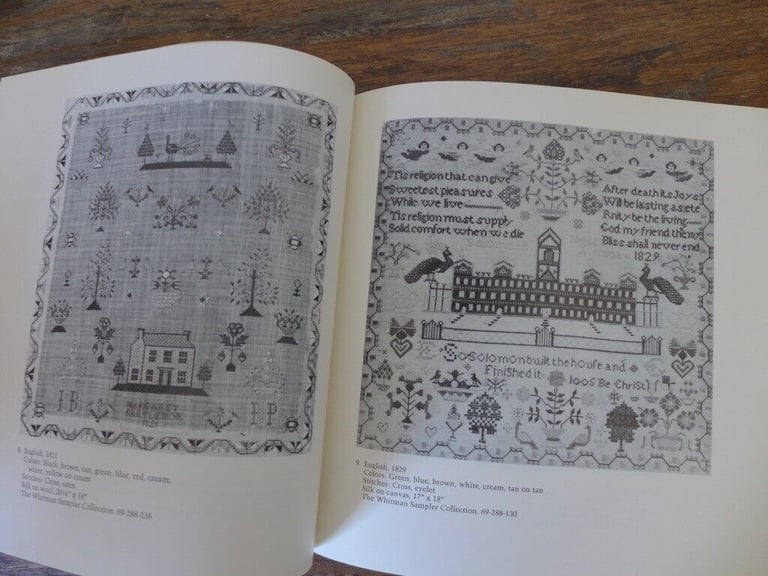 IB
IP
MARGARET
8. English, 1821
Colors: Black, brown, tan, green, blue, red, cream,
white, yellow on cream
Stitches: Cross, satin
Silk on wool, 20¼" x 18"
The Whitman Sampler Collection. 69-288-136
Tis religion that can give
Sweetest pleasures
While we live
Tis religion must supply
Solid comfort when we die
After death its Joys
Will be lasting as ete
Rnity be the living
God my friend then my
Bliss shall never end
1829
So solomon built the house and
Finished it
loos Be Christ
9. English, 1829
Colors: Green, blue, brown, white, cream, tan on tan
Stitches: Cross, eyelet
Silk on canvas, 17" x 18"
The Whitman Sampler Collection. 69-288-130